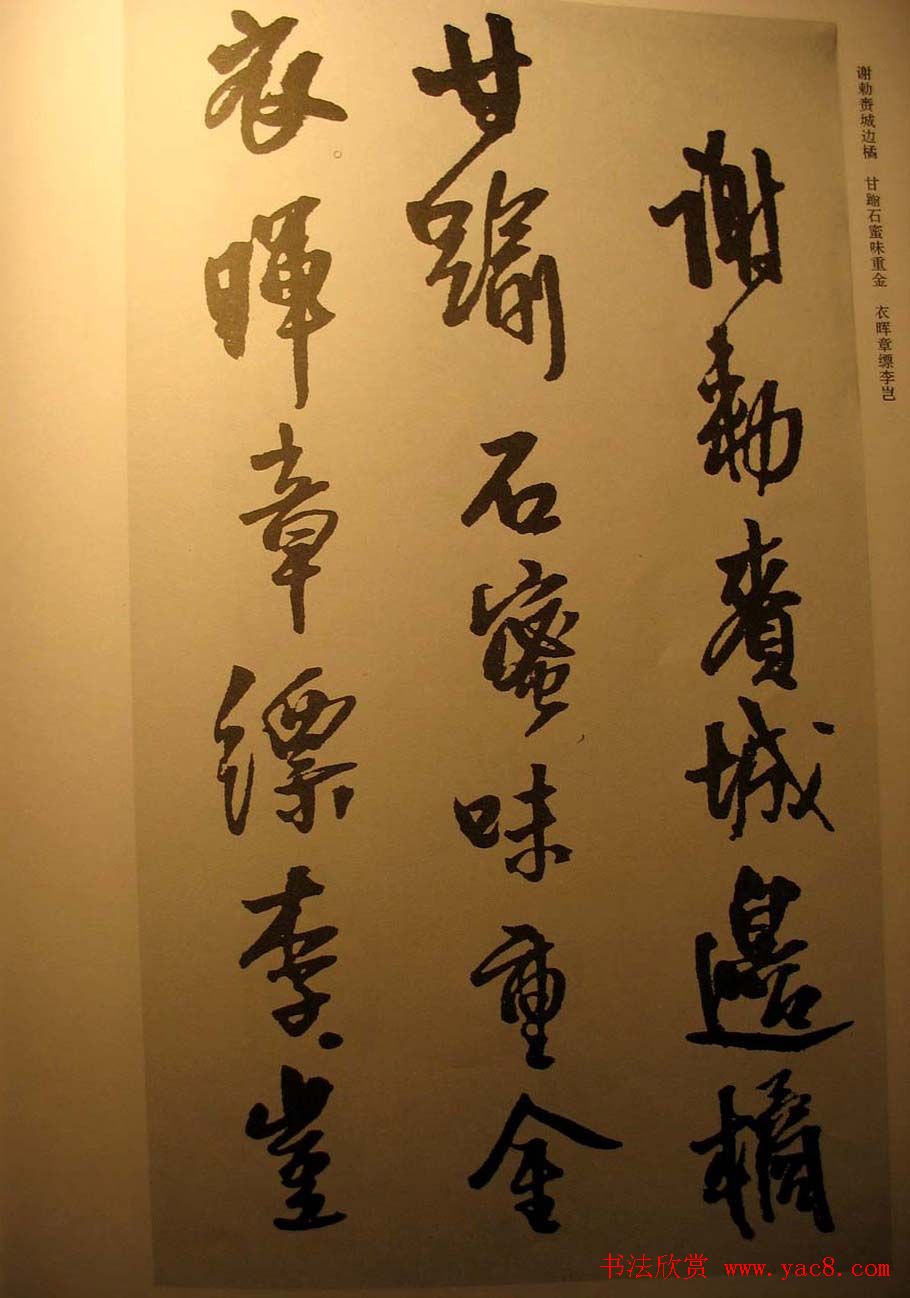 谢勅赉城边橘 甘踰石蜜味重金 衣晖章缥李岂
謝勅賚城邊橘
甘踰石蜜味重金
衣暉章縹李豈
书法欣赏 www.yac8.com